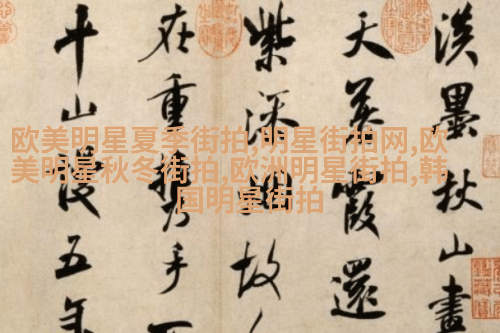 欧美明星夏季街拍,明星街拍网,欧
美明星秋冬街拍,欧洲明星街拍,韩
国明星街拍
淡墨秋山畫
天暮霞還
紫添煙故
在重攜手
平山謾五年